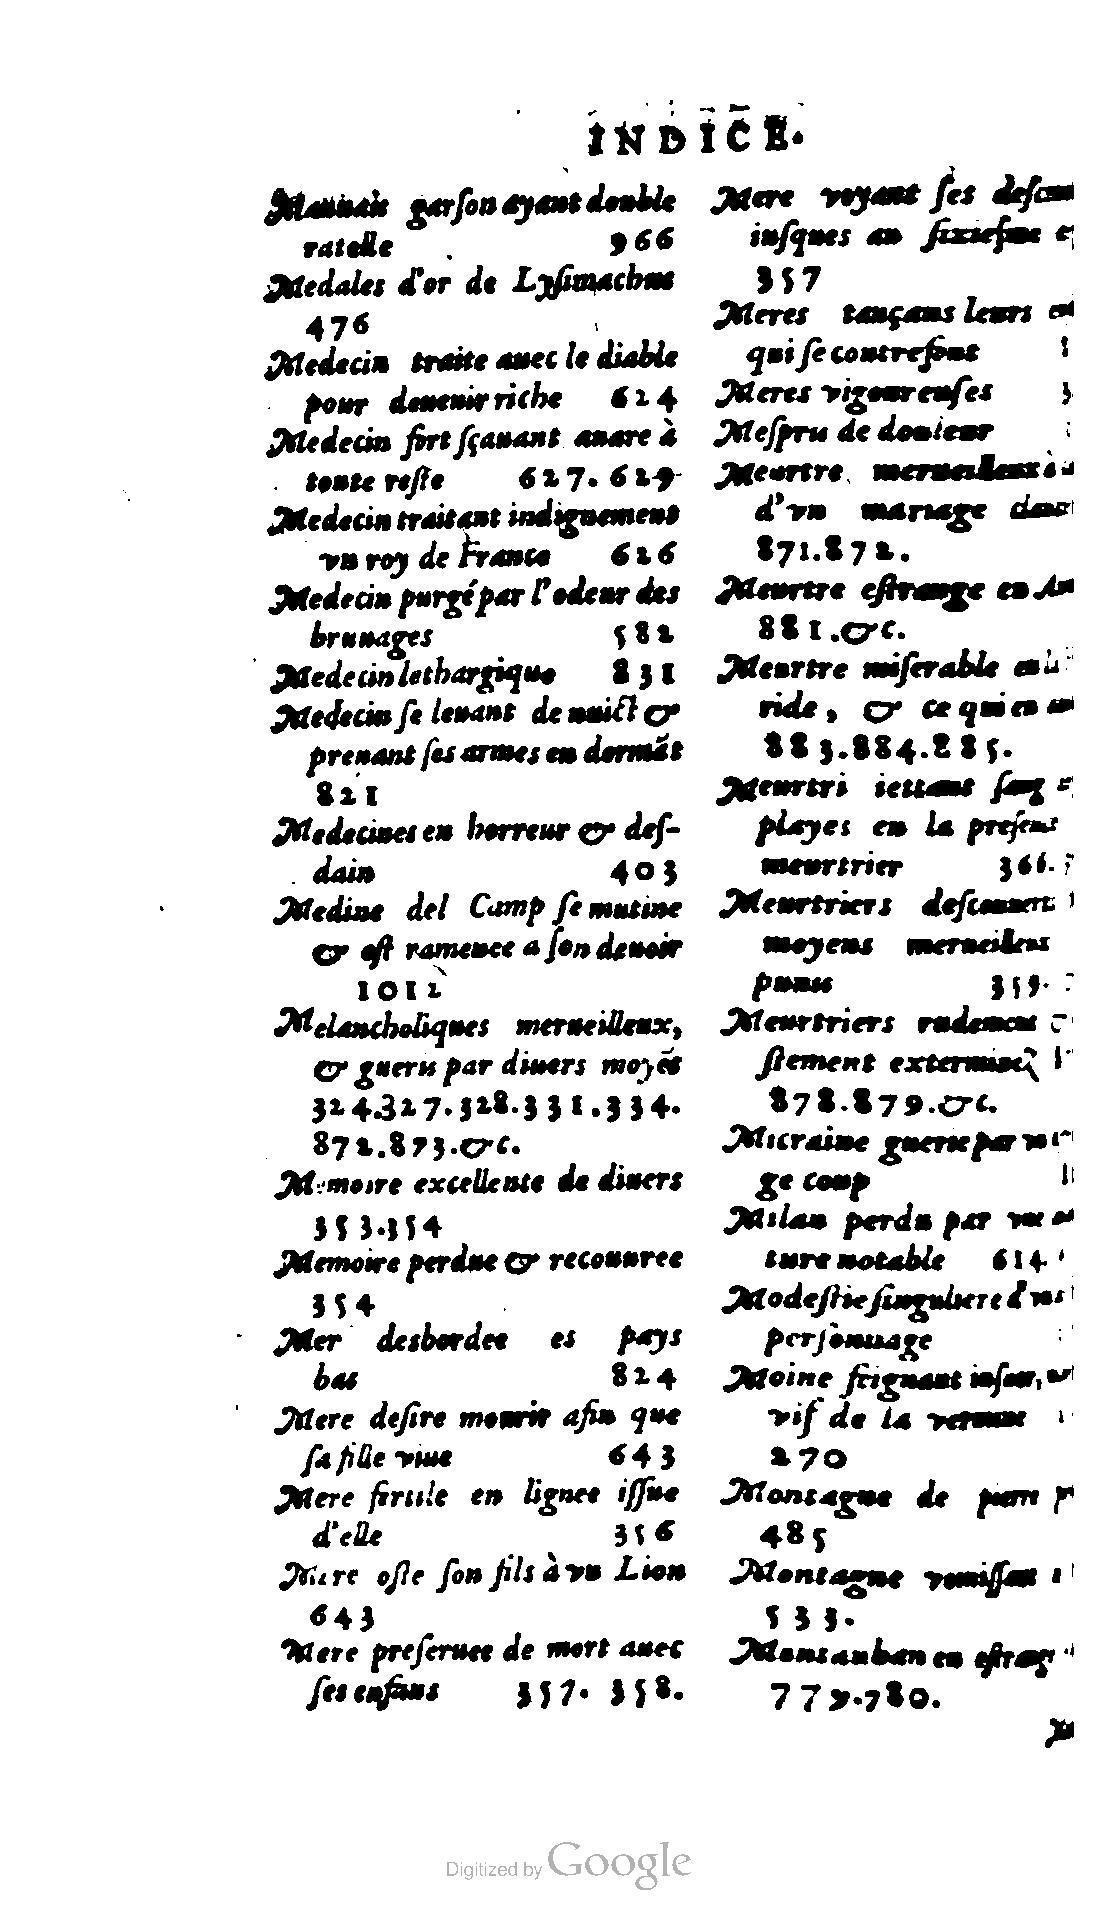 INDICE.
Mauuais garſon ayant double
ratelle 966
Medales d'or de Lyſimachus
476
Medecin traite auec le diable
pour deuenir riche 624
Medecin fort ſçauant auare à
toute reſte 627. 629
Medecin traitant indignement
vn roy de France 626
Medecin purgé par l'odeur des
bruuages 582
Medecin lethargique 831
Medecin ſe leuant de nuict &
prenant ſes armes en dormãt
821
Medecines en horreur & deſ-
dain 403
Medine del Camp ſe mutine
& eſt ramenee a ſon deuoir
1012
Melancholiques merueilleux,
& gueris par diuers moyẽs
324.327.328.331.334.
872.873.&c.
Memoire excellente de diuers
353.354
Memoire perdue & recouuree
354
Mer desbordee es pays
bas 824
Mere deſire mourir afin que
ſa fille viue 643
Mere fertile en lignee iſſue
d'elle 356
Mere oſte ſon fils à vn Lion
643
Mere preſeruee de mort auec
ſes enfans 357. 358.
Mere voyant ſes
iuſques au ſixieſme
357
Meres tançans leurs
qui ſe contrefont
Meres vigoureuſes
Meſpris de douleur
Meurtre merueilleux à
d'vn mariage
871.872.
Meurtre eſtrange en
881.&c.
Meurtre miſerable en
ride, & ce qui en
883.884.885.
Meurtri iettant ſang
playes en la
meurtrier 366.
Meurtriers
moyens merueilleux
punis 359.
Meurtriers rudement
ſtement exterminez
878.879.&c.
Micraine guerie par vn
ge coup
Milan perdu par vne
ture notable 614.
Modeſtie ſinguliere d'vn
perſonnage
Moine feignant
vif de la vermine
270
Montagne de pierre
485
Montagne vomiſſant
533.
Montauban en
779.780.
Digitized by Google